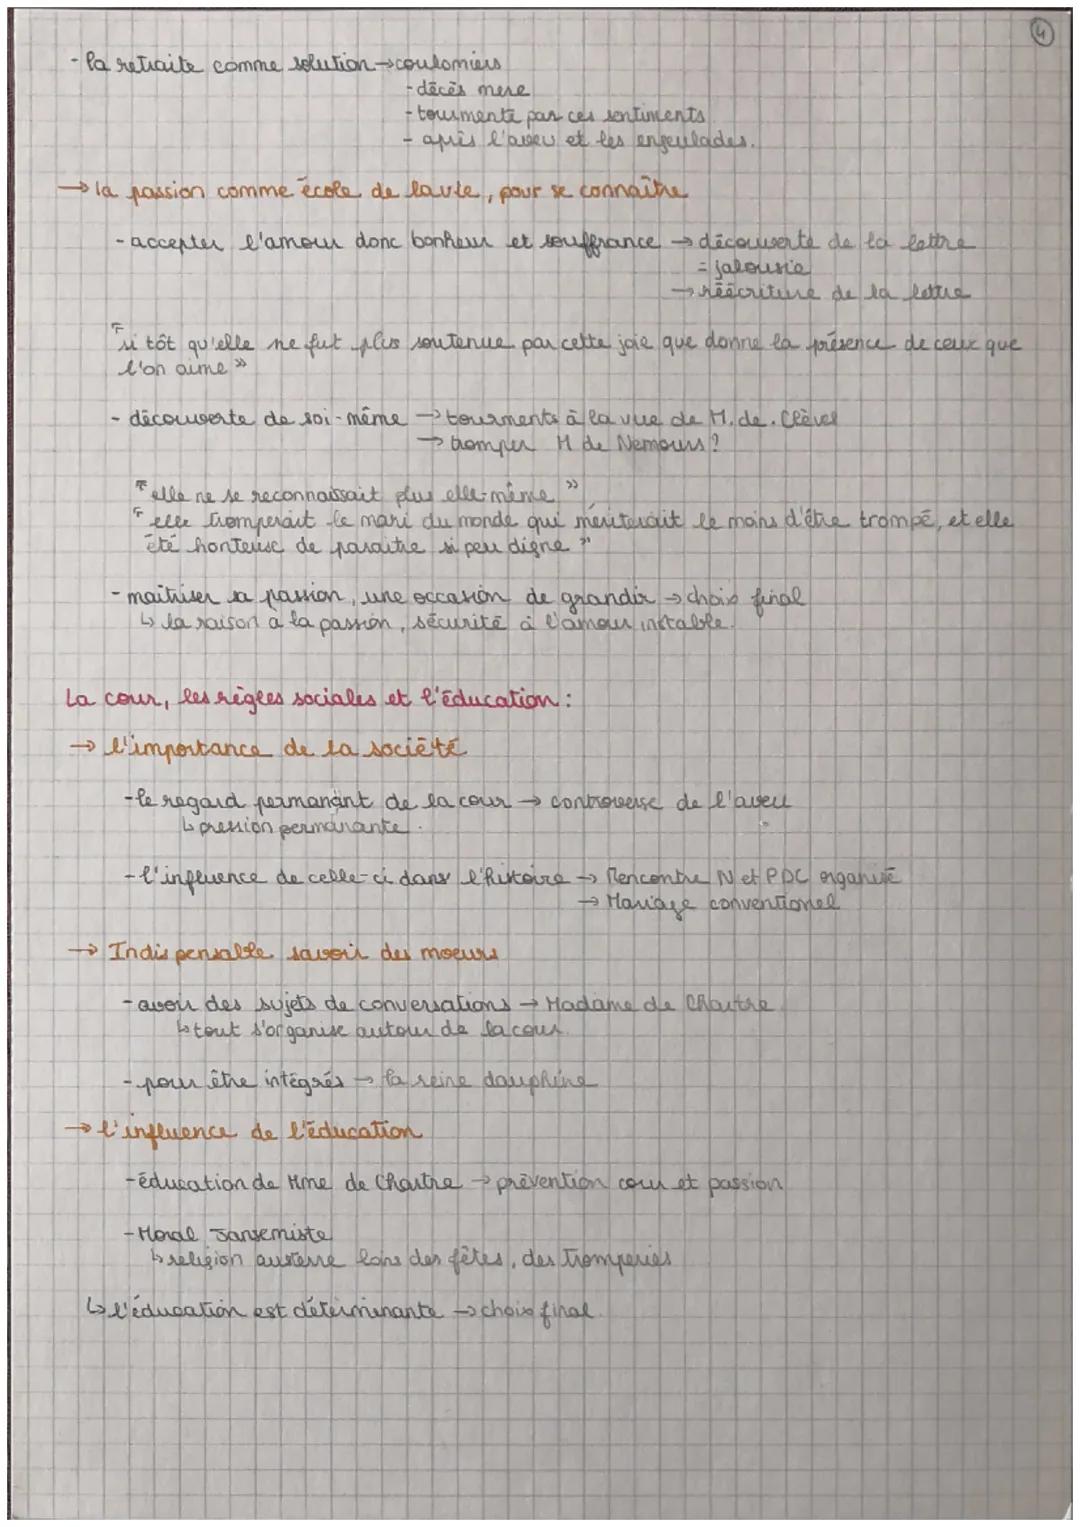 4
- la retraite comme solution → coulomiers
- décès mere
- tourmenté par ces sentiments
- après l'aveu et les engeulades.
→ la passion comme école de la vie, pour se connaître
- accepter l'amour donc bonheur et souffrance → découverte de la lettre
= jalousie
→ réécriture de la lettre
"si tôt qu'elle ne fut plus soutenue par cette joie que donne la présence de ceux que
l'on aime"
- découverte de soi-même → tourments à la vue de M. de. Clèves
→ tromper M de Nemours ?
"elle ne se reconnaissait plus elle-même"
"elle tromperait le mari du monde qui mériterait le moins d'être trompé, et elle
été honteuse de paraitre si peu digne"
- maîtriser sa passion, une occasion de grandir → choix final
↳ la raison à la passion, sécurité à l'amour instable.
La cour, les règles sociales et l'éducation :
→ l'importance de la société
- le regard permanant de la cour → controverse de l'aveu
↳ pression permanante.
- l'influence de celle-ci dans l'histoire → Rencontre N et PDC organisé
→ Mariage conventionel
→ Indispensable savoir des moeurs
- avoir des sujets de conversations → Madame de Chartre
↳ tout s'organise autour de la cour.
- pour être intégrés → la reine dauphine
→ l'influence de l'éducation
- éducation de Mme de Chartre → prévention cour et passion
- Moral Jansemiste
↳ religion austerre loins des fêtes, des tromperies
↳ l'éducation est déterminante → choix final.